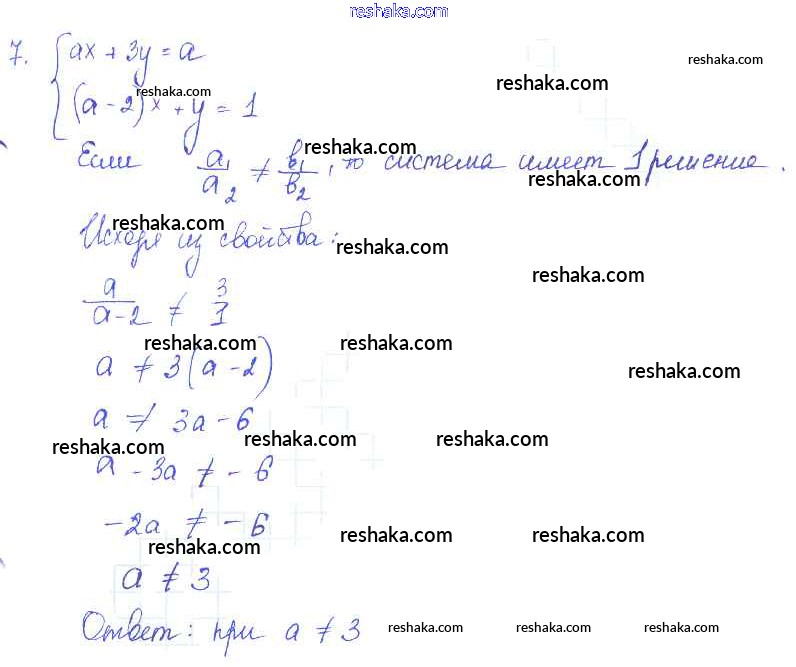 reshaka.com
7. { ax + 3y = a
reshaka.com
reshaka.com
(a - 2)x + y = 1
reshaka.com
reshaka.com
Если a₁/a₂ ≠ b₁/b₂, то система имеет 1 решение.
reshaka.com
reshaka.com
Исходя из свойства:
reshaka.com
reshaka.com
a/(a-2) ≠ 3/1
reshaka.com reshaka.com
a ≠ 3(a-2)
reshaka.com
a ≠ 3a - 6
reshaka.com reshaka.com reshaka.com
a - 3a ≠ - 6
-2a ≠ - 6
reshaka.com reshaka.com reshaka.com
a ≠ 3
Ответ: при a ≠ 3
reshaka.com reshaka.com reshaka.com